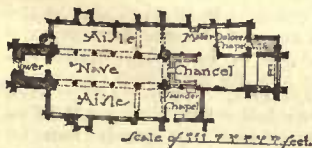 Aisle
Mater Dolorosa
Chapel
Tower
Nave
Chancel
Saunder
Chapel
Aisle
Scale of feet.